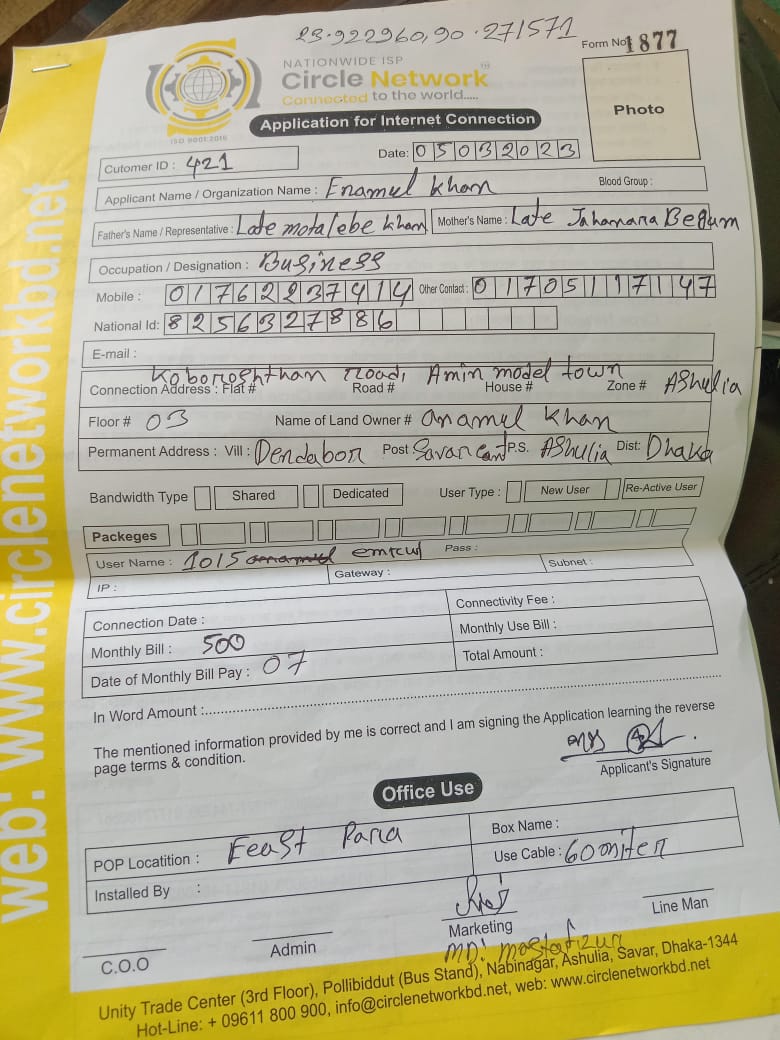 23.922960,90.271571
Form No 1877
NATIONWIDE ISP
Circle Network
Connected to the world.....
ISO 9001:2015
Application for Internet Connection
Photo
Cutomer ID : 421
Date: 05032023
Applicant Name / Organization Name : Enamul Khan Blood Group :
Father's Name / Representative : Late motalebe Khan Mother's Name : Late Jahanara Begum
Occupation / Designation : Business
Mobile : 01762237414 Other Contact : 01705117147
National Id: 8256327886
E-mail :
Koboroshthan Road, Amin model town
Connection Address : Flat # Road # House # Zone # AShulia
Floor # 03 Name of Land Owner # anamul Khan
Permanent Address : Vill : Dendabor Post Savar Cant P.S. AShulia Dist: Dhaka
Bandwidth Type Shared Dedicated User Type : New User Re-Active User
Packeges
User Name : 1015 Pass :
IP : Gateway : Subnet :
Connection Date : Connectivity Fee :
Monthly Bill : 500 Monthly Use Bill :
Date of Monthly Bill Pay : 07 Total Amount :
In Word Amount :
The mentioned information provided by me is correct and I am signing the Application learning the reverse
page terms & condition.
Applicant's Signature
Office Use
POP Locatition : Feast Para Box Name :
Installed By : Use Cable : 60 miter
C.O.O Admin Marketing Line Man
MD: mostafizur
Unity Trade Center (3rd Floor), Pollibiddut (Bus Stand), Nabinagar, Ashulia, Savar, Dhaka-1344
Hot-Line: + 09611 800 900, info@circlenetworkbd.net, web: www.circlenetworkbd.net
web: www.circlenetworkbd.net